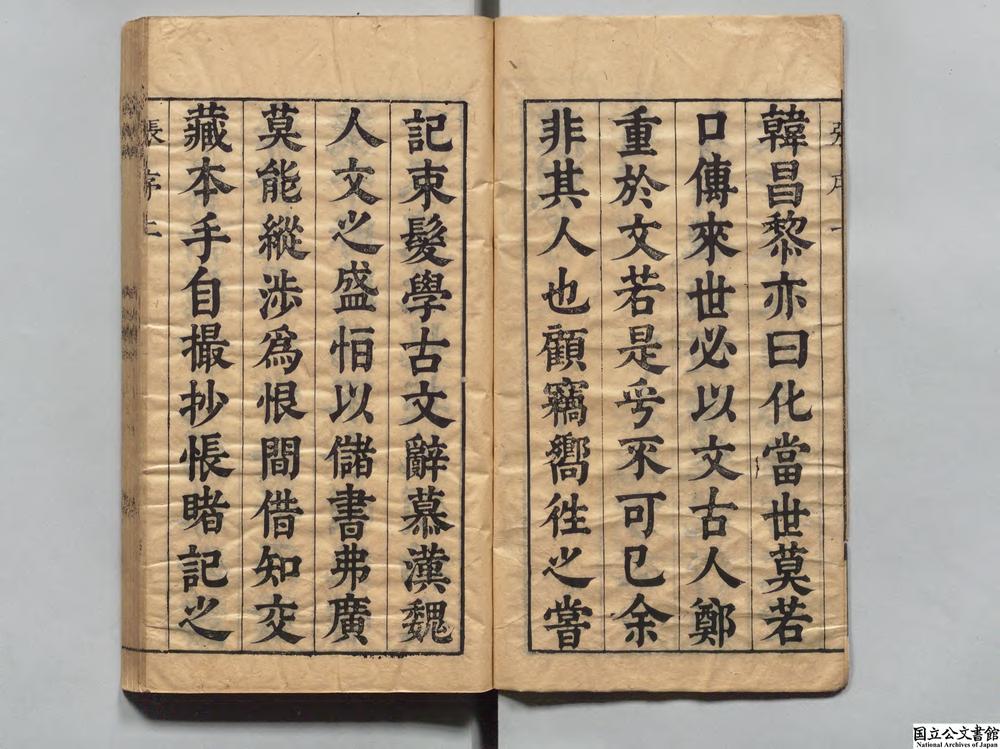 韓昌黎亦曰化當世莫若
口傳來世必以文古人鄭
重於文若是乎不可已余
非其人也顧竊嚮徃之嘗
記束髮學古文辭慕漢魏
人文之盛怕以儲書弗廣
莫能縱涉爲恨間借知交
藏本手自撮抄悵睹記之
張序上
国立公文書館
National Archives of Japan